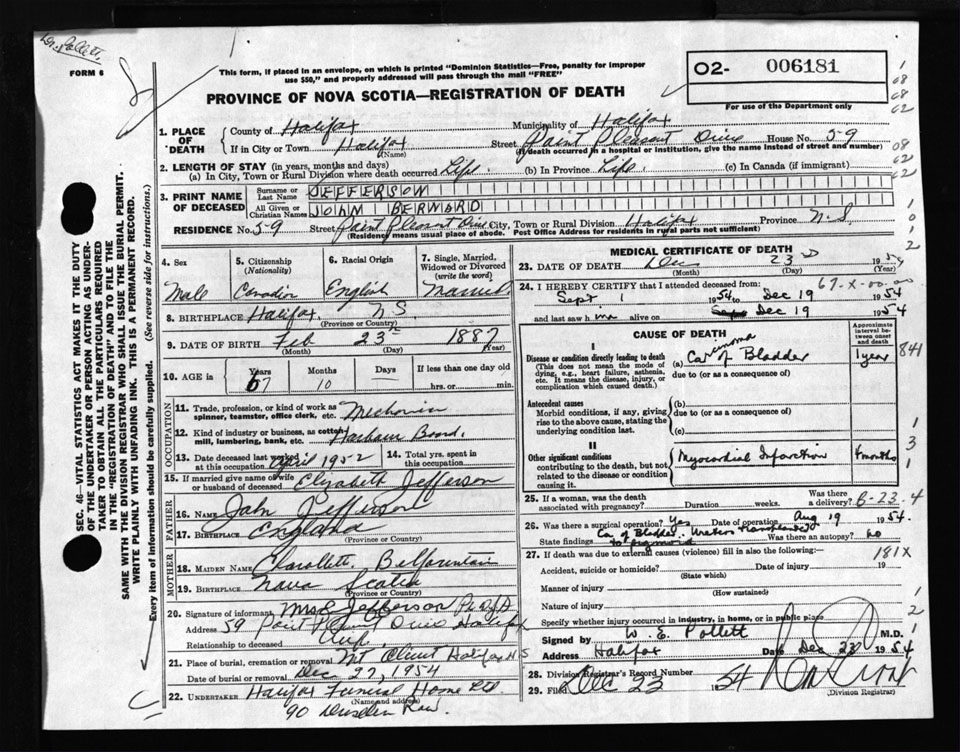 Dr. Pollett.
FORM 6
This form, if placed in an envelope, on which is printed "Dominion Statistics—Free, penalty for improper
use $50," and properly addressed will pass through the mail "FREE"
O2- 006181
For use of the Department only
PROVINCE OF NOVA SCOTIA—REGISTRATION OF DEATH
1. PLACE OF DEATH
County of Halifax Municipality of Halifax
If in City or Town Halifax Street Point Pleasant Drive House No. 59
(Name) (If death occurred in a hospital or institution, give the name instead of street and number)
2. LENGTH OF STAY (in years, months and days)
(a) In City, Town or Rural Division where death occurred Life. (b) In Province Life. (c) In Canada (if immigrant)
3. PRINT NAME OF DECEASED
Surname or Last Name JEFFERSON
All Given or Christian Names JOHN BERWARD
RESIDENCE No. 59 Street Point Pleasant Drive City, Town or Rural Division Halifax Province N.S
(Residence means usual place of abode. Post Office Address for residents in rural parts not sufficient)
4. Sex Male
5. Citizenship (Nationality) Canadian
6. Racial Origin English
7. Single, Married, Widowed or Divorced (write the word) Married
8. BIRTHPLACE Halifax, N.S
(Province or Country)
9. DATE OF BIRTH Feb 23rd 1887
(Month) (Day) (Year)
10. AGE in Years 67 Months 10 Days If less than one day old
hrs. or min.
OCCUPATION
11. Trade, profession, or kind of work as spinner, teamster, office clerk, etc. Mechanic
12. Kind of industry or business, as cotton mill, lumbering, bank, etc. Harbour Board.
13. Date deceased last worked at this occupation April 1952 14. Total yrs. spent in this occupation
15. If married give name of wife or husband of deceased Elizabeth Jefferson
FATHER
16. Name John Jefferson
17. Birthplace England
(Province or Country)
MOTHER
18. Maiden Name Charollett.
19. Birthplace Nova Scotia
(Province or Country)
20. Signature of informant Mrs E Jefferson
Address 59 Point Pleasant Drive Halifax
Relationship to deceased Wife
21. Place of burial, cremation or removal Mt Olivet Halifax N S
Date of burial or removal Dec 27, 1954
22. UNDERTAKER Halifax Funeral Home Ltd
(Name and address)
90 Dresden Row
MEDICAL CERTIFICATE OF DEATH
23. DATE OF DEATH Dec 23rd 1954
(Month) (Day) (Year)
24. I HEREBY CERTIFY that I attended deceased from: 67-X-00-00
Sept 1 1954 to Dec 19 1954
and last saw him alive on Sept Dec 19 1954
CAUSE OF DEATH
Approximate interval between onset and death
I
Disease or condition directly leading to death
(This does not mean the mode of dying, e.g., heart failure, asthenia, etc. It means the disease, injury, or complication which caused death.)
(a) Carcinoma Ca of Bladder 1 year 841
due to (or as a consequence of)
Antecedent causes
Morbid conditions, if any, giving rise to the above cause, stating the underlying condition last.
(b)
due to (or as a consequence of)
(c)
II
Other significant conditions contributing to the death, but not related to the disease or condition causing it.
Myocardial Infarction 4 months
25. If a woman, was the death associated with pregnancy? Duration weeks. Was there a delivery? B-23-4
26. Was there a surgical operation? Yes Date of operation Aug 19 1954.
State findings Ca of Bladder. Ureters transplanted to sigmoid Was there an autopsy? no
27. If death was due to external causes (violence) fill in also the following:— 181X
Accident, suicide or homicide? Date of injury 19
(State which)
Manner of injury
(How sustained)
Nature of injury
Specify whether injury occurred in industry, in home, or in public place
Signed by W. E. Pollett M.D.
Address Halifax Date Dec 23 1954
28. Division Registrar's Record Number
29. Filed Dec 23 1954
(Division Registrar)
SEC. 46—VITAL STATISTICS ACT MAKES IT THE DUTY
OF THE UNDERTAKER OR PERSON ACTING AS UNDER-
TAKER TO OBTAIN ALL THE PARTICULARS REQUIRED
IN THE "REGISTRATION OF DEATH" AND TO FILE THE
SAME WITH THE DIVISION REGISTRAR WHO SHALL ISSUE THE BURIAL PERMIT.
WRITE PLAINLY WITH UNFADING INK. THIS IS A PERMANENT RECORD.
Every item of information should be carefully supplied. (See reverse side for instructions.)